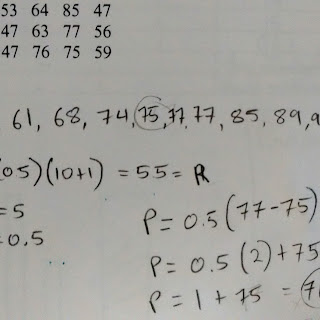 53 64 85 47
47 63 77 56
47 76 75 59
, 61, 68, 74, 75, 77, 77, 85, 89, 9
05)(10+1) = 55 = R
= 5
= 0.5
P = 0.5 (77-75)
P = 0.5 (2) + 75
P = 1 + 75 = 7